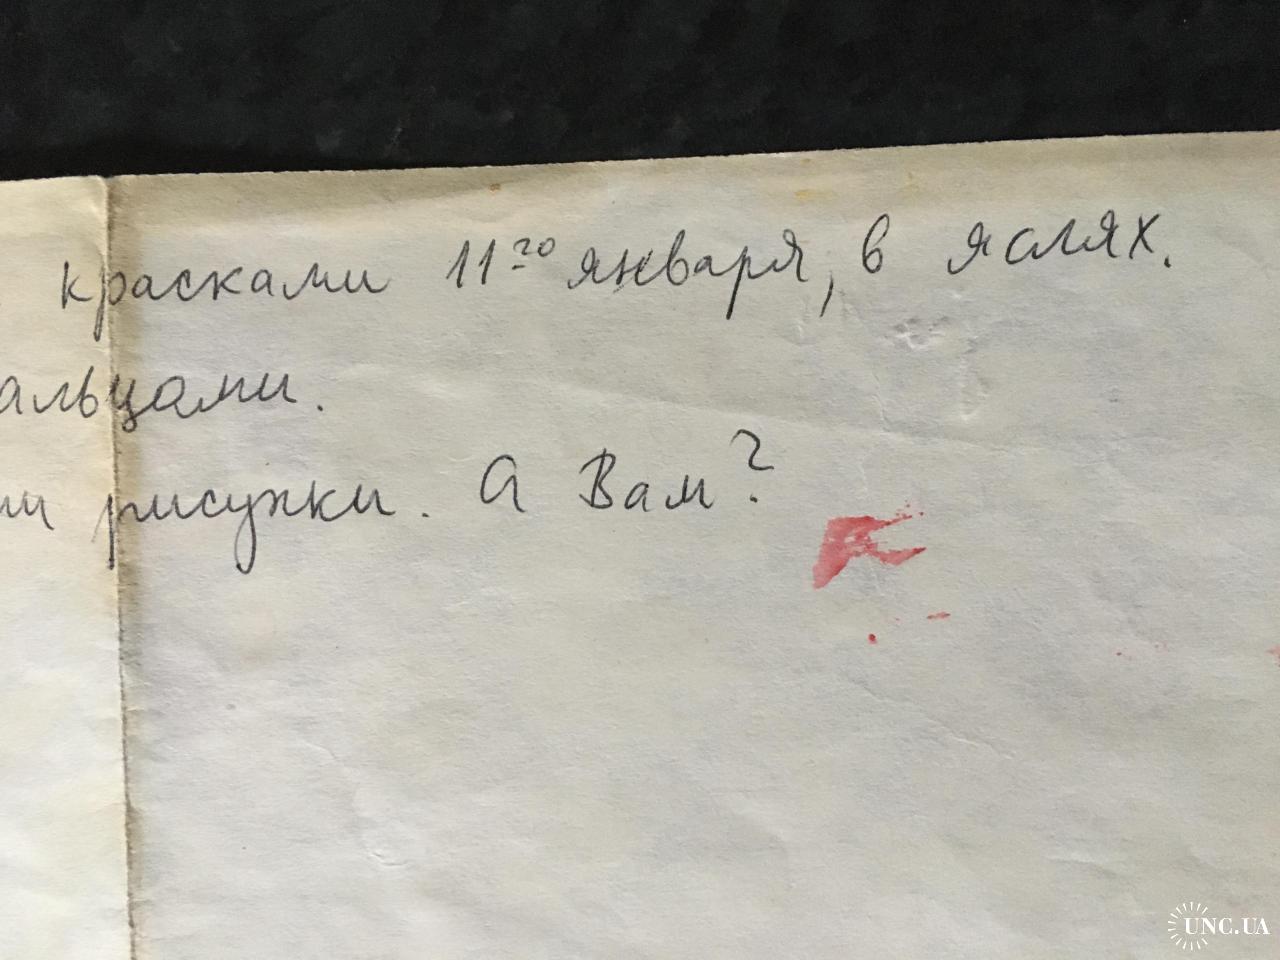 красками 11го января, в яслях.
альцами.
ми рисунки. А Вам?
UNC.UA